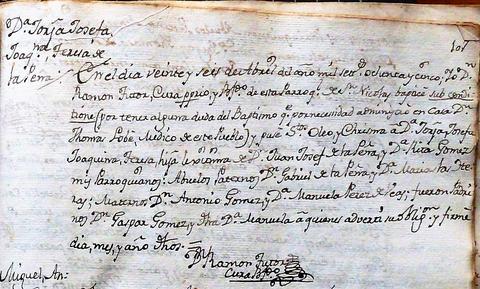 Dª Jorja Josefa
Joaqna Teresa de
la Peña
107
En el dia veinte y seis de Abril del año mil setts ochenta y cinco, Yo Dn
Ramon Tutor, Cura pprio y Bfdo de esta Parroql de Sn Nicolas, bapticé sub condi-
tione (por tener alguna duda del Baptismo qe por necesidad administró en casa Dn
Thomas Lobé, Medico de este Pueblo) y puse Stos Oleo y Chrisma á Dª Jorja Josefa
Joaquina Teresa, hija legitima de Dn Juan Josef de la Peña, y Dª Rita Gomez
mis Parroquianos: Abuelos Paternos Dn Gabriel de la Peña, y Dª Maria
ras; Maternos Dn Antonio Gomez, y Dª Manuela Perez de; fueron Padri-
nos Dn Gaspar Gomez, y dha Dª Manuela, á quienes advertí su oblign y firmé
dia, mes, y año dhos.
Dn Ramon Tutor
Cura Bfdo
Miguel, An-